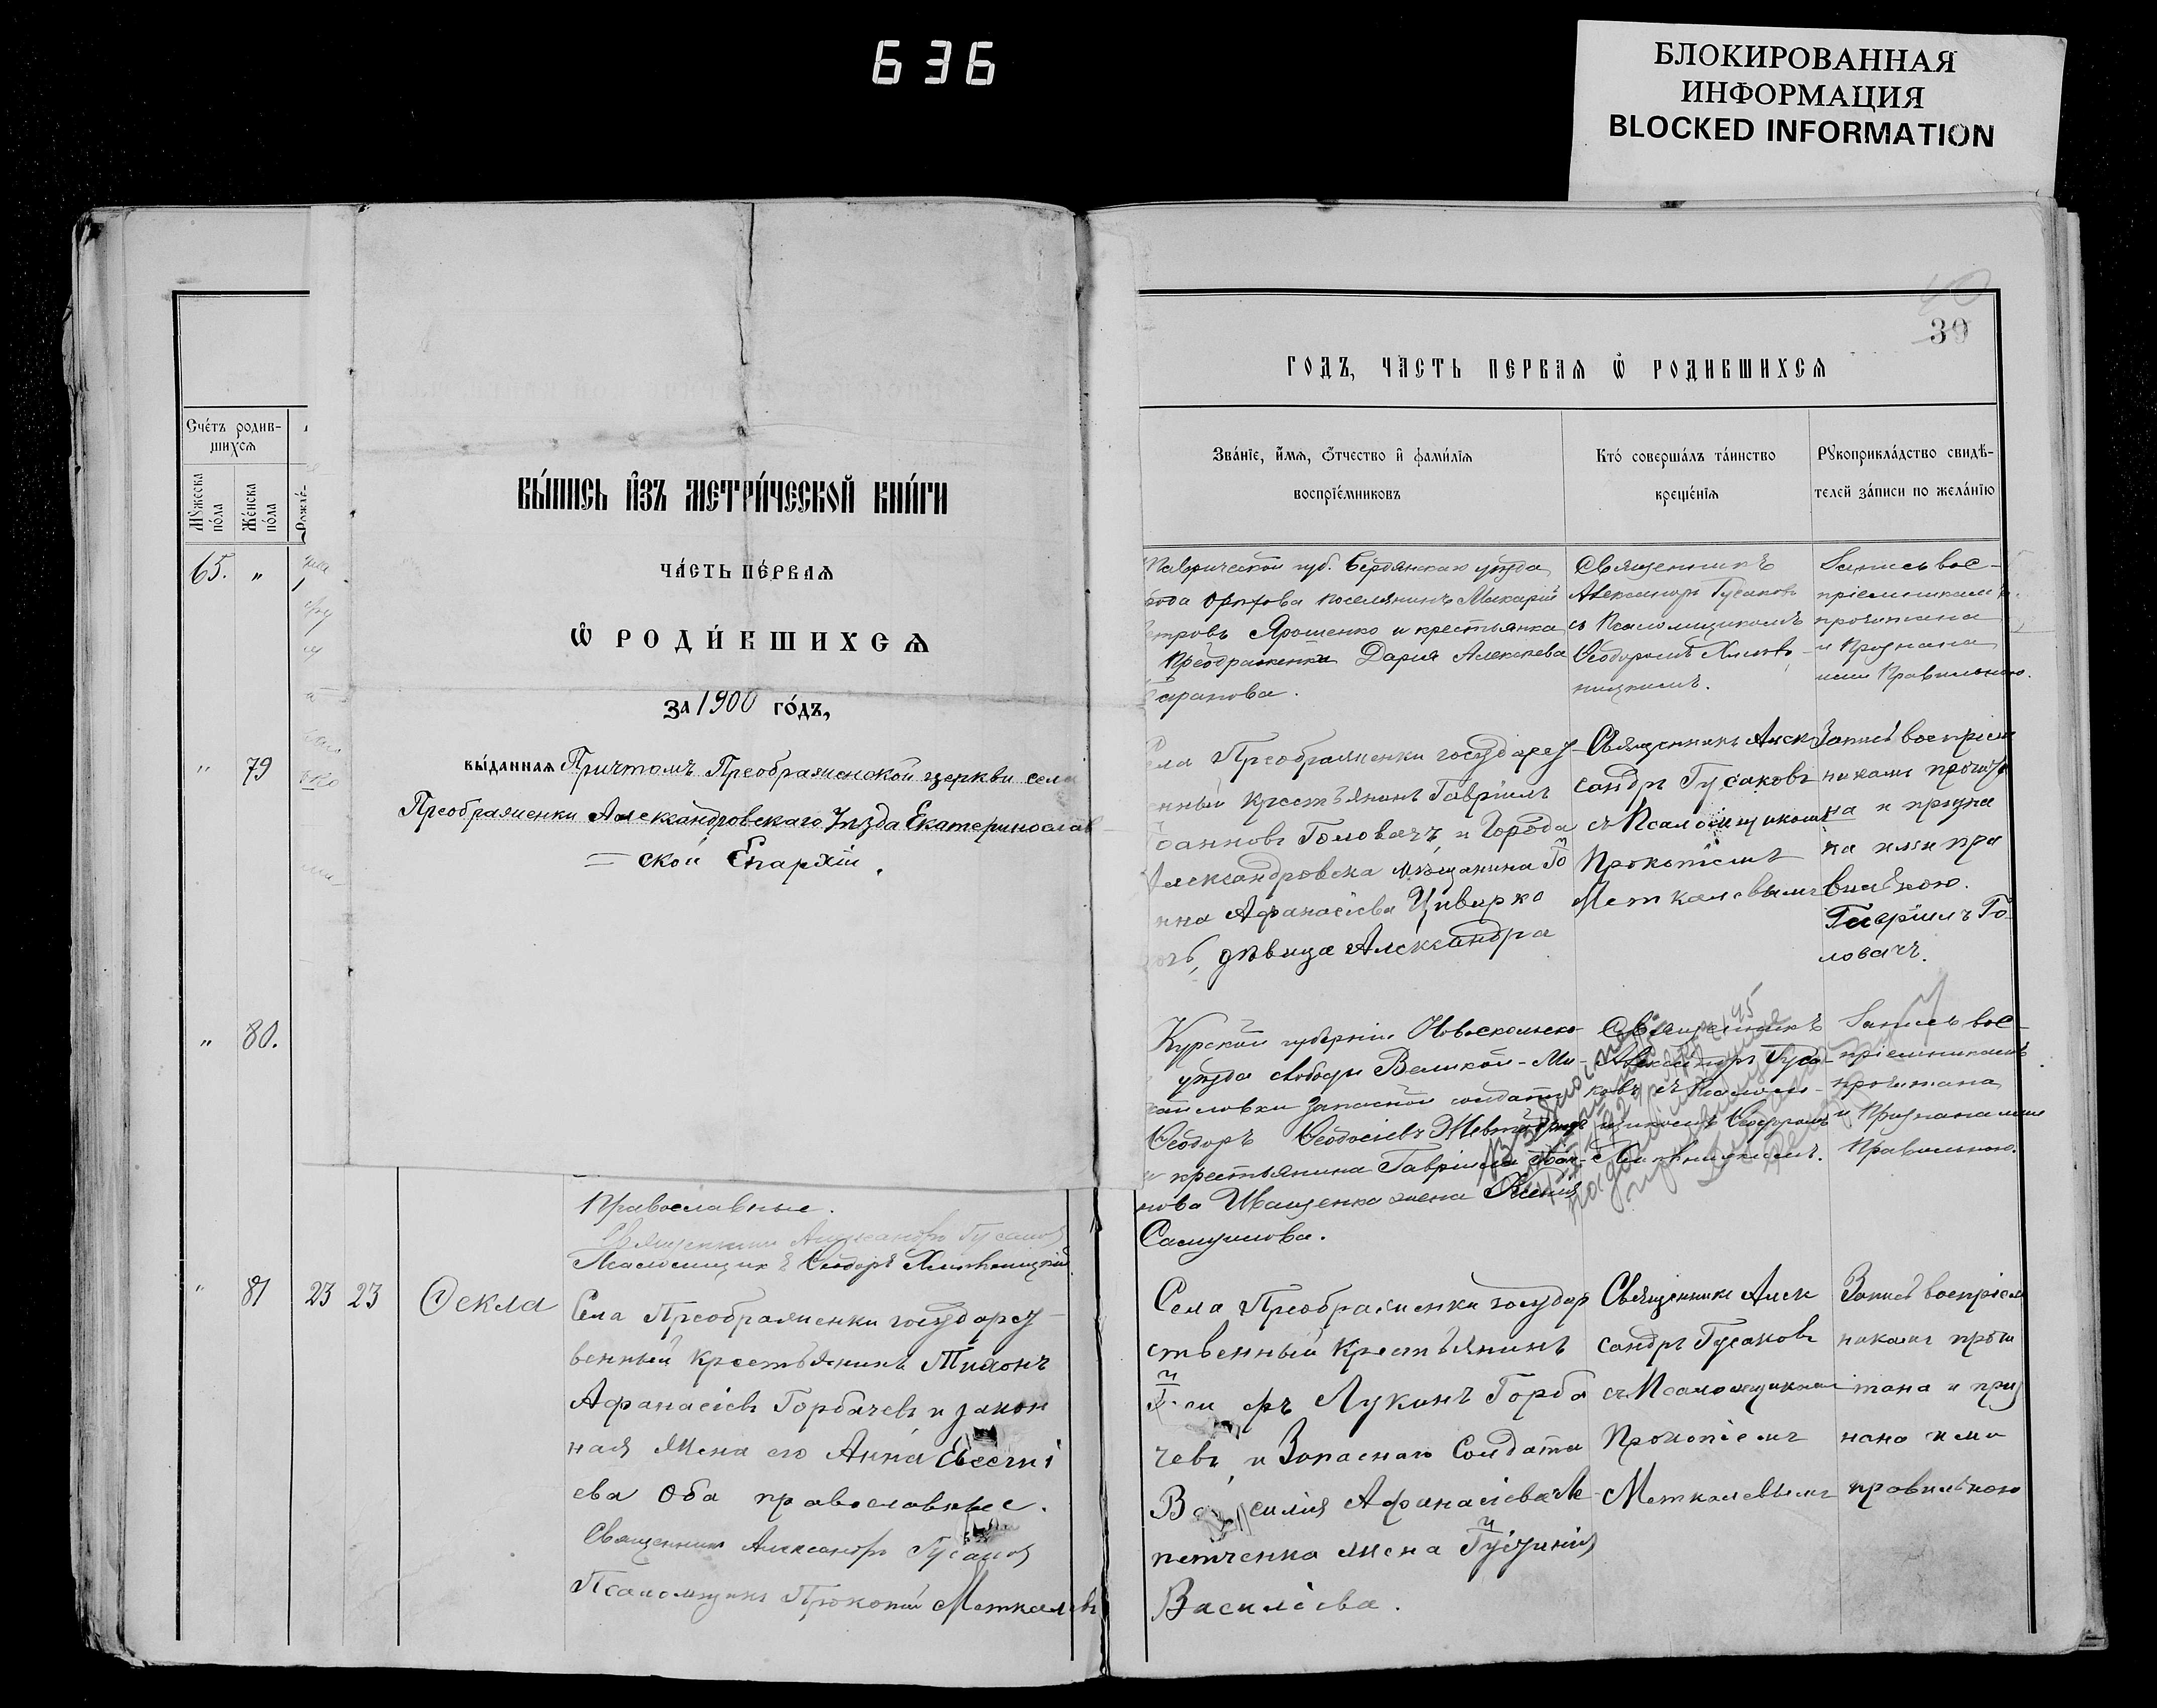 636
БЛОКИРОВАННАЯ
ИНФОРМАЦИЯ
BLOCKED INFORMATION
Сче́тъ родив-
шихсѧ
Мꙋ́жеска
по́ла
Же́нска
по́ла
Рожде́-
65. „
„ 79
„ 80.
ВЫ́ПИСЬ И҆ЗЪ МЕТРИ́ЧЕСКОЙ КНИ́ГИ
ЧА́СТЬ ПЕ́РВАѦ
Ѡ҆ РОДИ́ВШИХСѦ
За 1900 го́дъ,
вы́данная Причтомъ Преображенской церкви села
Преображенки Александровскаго Уѣзда Екатеринослав
= ской Епархіи.
Православные.
Священникъ Александръ Гусаковъ
Псаломщикъ Ѳеодоръ
„ 81 23 23 Ѳекла
Села Преображенки государст
венный крестьянинъ Тихонъ
Афанасіевъ Горбачевъ и закон
ная жена его Анна Евсегні
ева Оба православные.
Священникъ Александръ Гусаковъ
Псаломщикъ Прокопій Меткалевъ
39
ГОДЪ, ЧАСТЬ ПЕРВАѦ Ѡ҆ РОДИВШИХСѦ
Зва́нїе, и҆́мѧ, ѻ҆́тчество и҆ фами́лїѧ
воспрїе́мниковъ
Кто̀ соверша́лъ та́инство
креще́нїѧ
Рꙋкоприкла́дство свидѣ́-
телей за́писи по жела́нїю
Таврической губ. Бердянскаго уѣзда
Орѣхова поселянинъ Макарій
Петровъ Ярошенко и крестьянка
Преображенки Дарія Алексѣева
Священникъ
Александръ Гусаковъ
съ Псаломщикомъ
Ѳеодоромъ
Запись вос-
пріемниками
прочитана
и признана
ими Правильною.
Села Преображенки государст
енный крестьянинъ Гавріилъ
Іоанновъ Головачъ, и Города
Александровска мѣщанина Іо
нна Афанасіева Цивирко
дочь, дѣвица Александра
Священникъ Алек
сандръ Гусаковъ
съ Псаломщикомъ
Прокопіемъ
Меткалевымъ
Запись воспріем
никами прочита
на и призна
на ими пра
вильною.
Гавріилъ Го-
ловачъ.
Курской губерніи Новооскольско-
уѣзда слободы Великой-Ми-
хайловки запасной солдатъ
Ѳеодоръ Ѳеодосіевъ
и крестьянина Гавріила Іоан-
нова Иващенко жена Ксенія
Самуилова.
Священникъ
Александръ Гуса-
ковъ съ Псалом-
щикомъ Ѳеодоромъ
Запись вос-
пріемниками
прочитана
и Признана ими
Правильною.
Села Преображенки государ
ственный Крестьянинъ
Лукинъ Горба
чевъ, и Запаснаго Солдата
Василія Афанасіева Ле
петченка жена
Василіева.
Священникъ Алек
сандръ Гусаковъ
съ Псаломщикомъ
Прокопіемъ
Меткалевымъ
Запись воспріем
никами прочи
тана и приз
нана ими
правильною